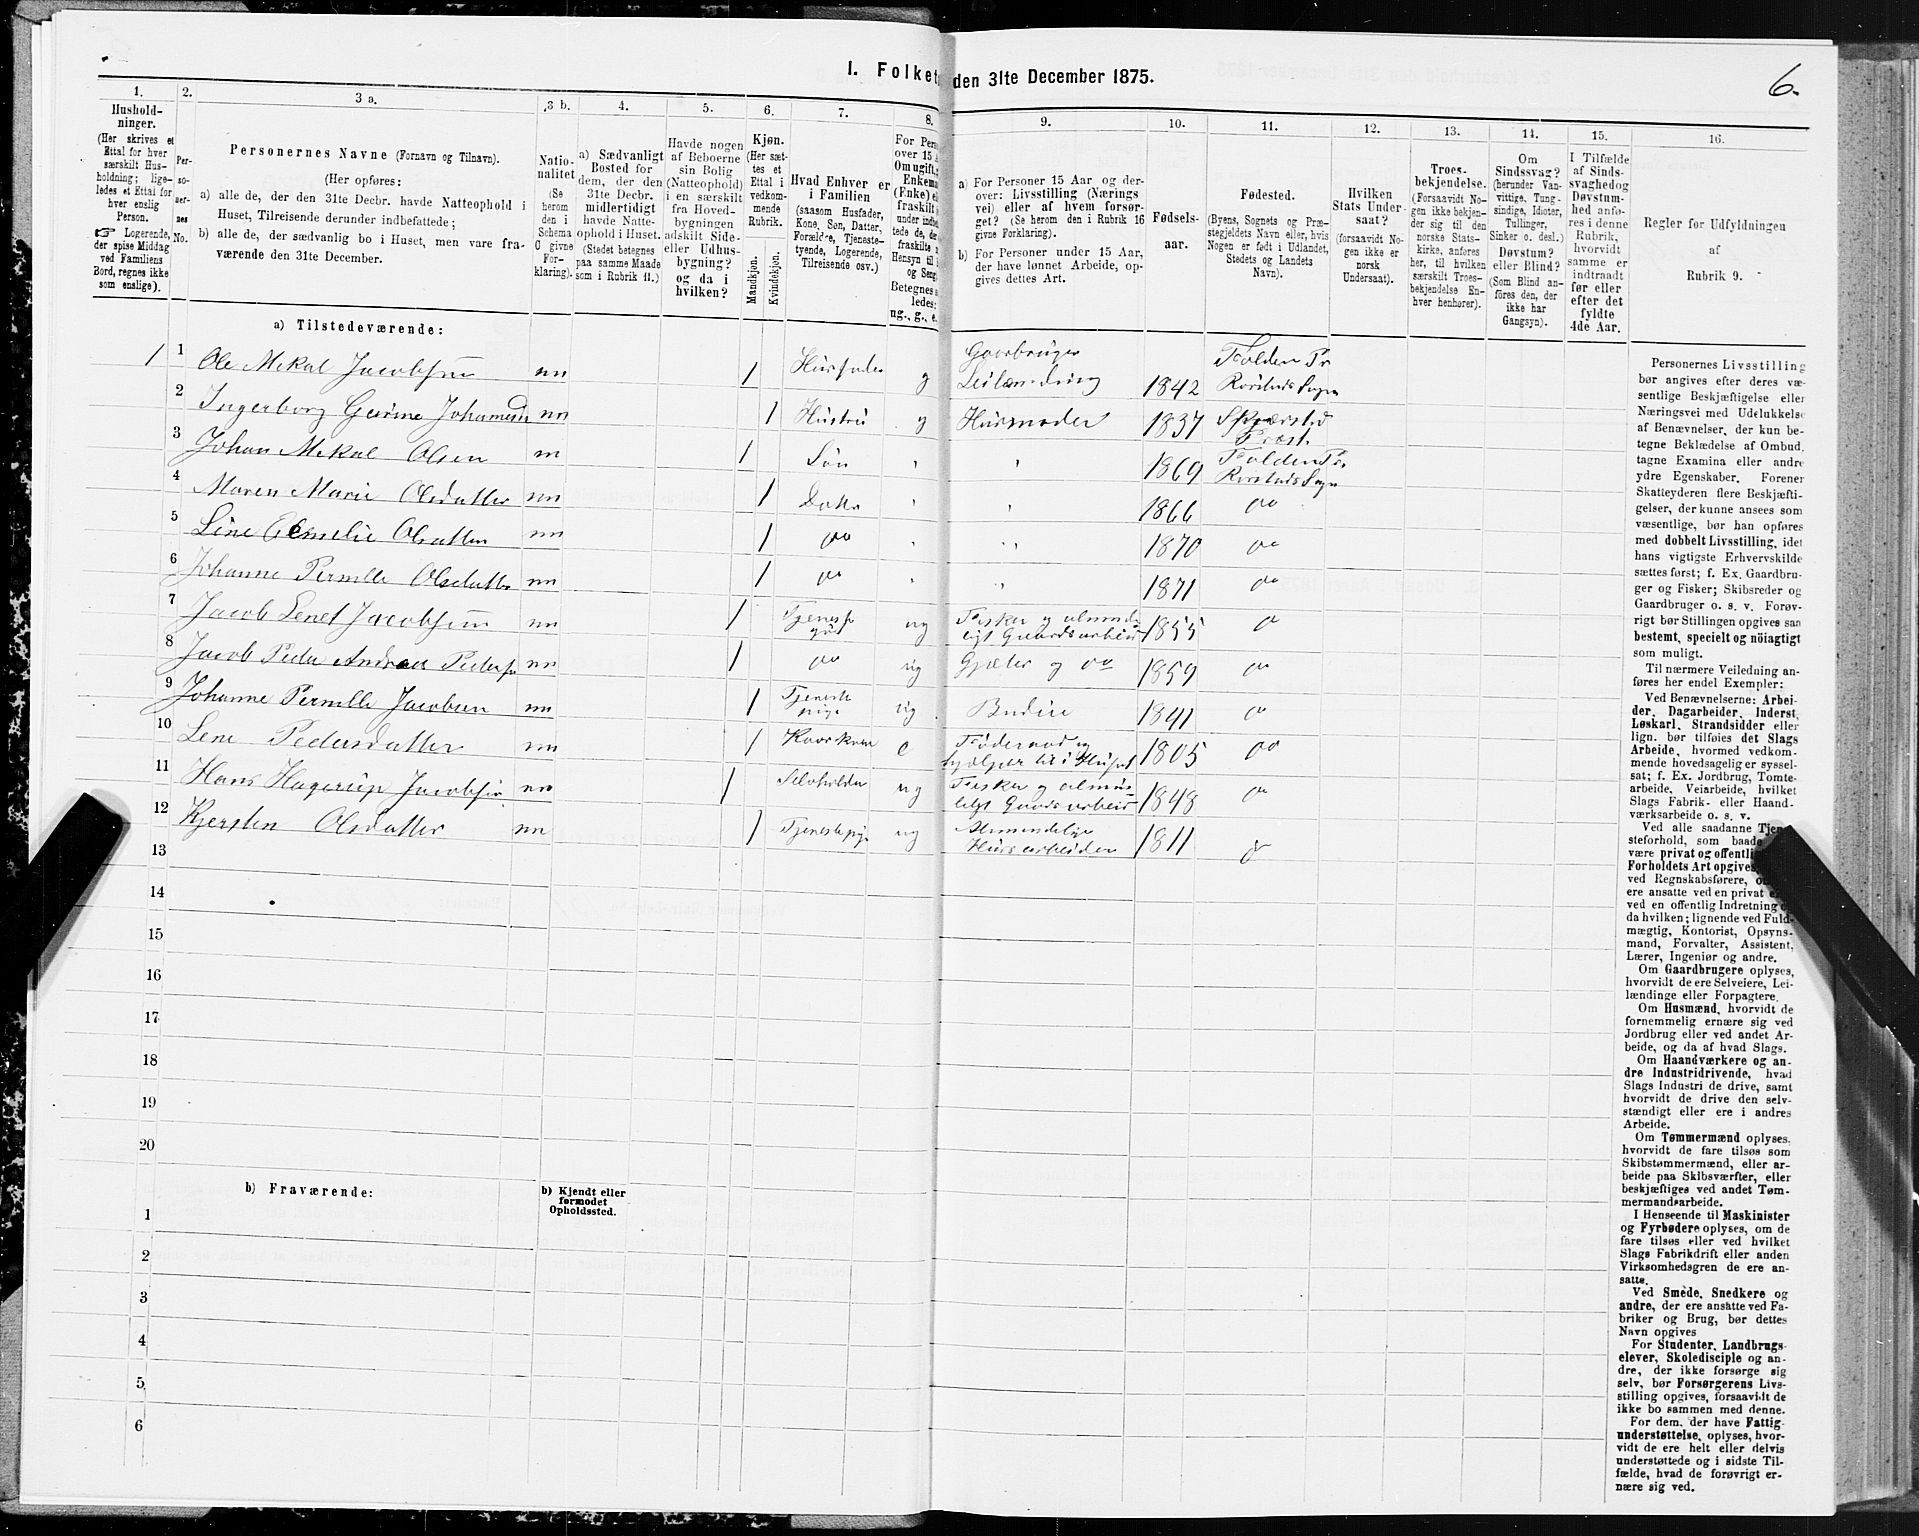 I. Folket den 31te December 1875.
6.
1.
Hushold-
ninger.
(Her skrives et
Ettal for hver
særskilt Hus-
holdning; lige-
ledes et Ettal for
hver enslig
Person.
☞ Logerende,
der spise Middag
ved Familiens
Bord, regnes ikke
som enslige).
2.
Per-
so-
ner-
nes
No.
3 a.
Personernes Navne (Fornavn og Tilnavn).
(Her opføres:
a) alle de, der den 31te Decbr. havde Natteophold i
Huset, Tilreisende derunder indbefattede;
b) alle de, der sædvanlig bo i Huset, men vare fra-
værende den 31te December.
3 b.
Natio-
nalitet
(Se
herom
den i
Schema
C givne
For-
klaring).
4.
a) Sædvanligt
Bosted for
dem, der den
31te Decbr.
midlertidigt
havde Natte-
ophold i Huset.
(Stedet betegnes
paa samme Maade
som i Rubrik 11.)
5.
Havde nogen
af Beboerne
sin Bolig
(Natteophold)
i en særskilt
fra Hoved-
bygningen
adskilt Side-
eller Udhus-
bygning?
og da i
hvilken?
6.
Kjøn.
(Her sæt-
tes et
Ettal i
vedkom-
mende
Rubrik.
Mandkjøn.
Kvindekjøn.
7.
Hvad Enhver er
i Familien
(saasom Husfader,
Kone, Søn, Datter,
Forældre, Tjeneste-
tyende, Logerende,
Tilreisende osv.)
8.
For Pers
over 15 A
Om ugift,
Enkema
(Enke) el
fraskilt
under indbe
tede de, der
fraskilte
Hensyn til
og Seng
Betegnes s
ledes:
ug., g., e.
9.
a) For Personer 15 Aar og der-
over: Livsstilling (Nærings
vei) eller af hvem forsør-
get? (Se herom den i Rubrik 16
givne Forklaring).
b) For Personer under 15 Aar,
der have lønnet Arbeide, op-
gives dettes Art.
10.
Fødsels-
aar.
11.
Fødested.
(Byens, Sognets og Præ-
stegjeldets Navn eller, hvis
Nogen er født i Udlandet,
Stedets og Landets
Navn).
12.
Hvilken
Stats Under
saat?
(forsaavidt No-
gen ikke er
norsk
Undersaat).
13.
Troes-
bekjendelse.
(Forsaavidt No-
gen ikke bekjen-
der sig til den
norske Stats-
kirke, anføres
her, til hvilken
særskilt Troes-
bekjendelse En-
hver henhører).
14.
Om
Sindssvag?
(herunder Van-
vittige, Tung-
sindige, Idioter,
Tullinger,
Sinker o. desl.)
Døvstum?
eller Blind?
(Som Blind an-
føres den, der
ikke har
Gangsyn).
15.
I Tilfælde
af Sinds-
svaghedog
Døvstum-
hed anfø-
res i denne
Rubrik,
hvorvidt
samme er
indtraadt
før eller
efter det
fyldte
4de Aar.
16.
Regler for Udfyldningen
af
Rubrik 9.
a) Tilstedeværende:
1 1 Ole Mikal Jacobsen nn 1 Husfader g Gaardbruger Leilænding 1842 Folden Pr Rørstads Sogn
2 Ingerborg Gurine Johannesd nn 1 Hustru g Husmoder 1837 Skjærstad Præst.
3 Johan Mikal Olsen nn 1 Søn 1869 Folden Pr. Rørstads Sogn
4 Maren Marie Olsdatter nn 1 Datter 1866 do
5 Line Emelie Olsdatter nn 1 do 1870 do
6 Johanne Pernille Olsdatter nn 1 do 1871 do
7 Jacob Lenet Jacobsen nn 1 Tjeneste gut ug Fisker og almindeligt Gaardsarbeide 1855 do
8 Jacob Peder Andreas Peders nn 1 do ug Gjæter og do 1859 do
9 Johanne Pernille Jacobsen nn 1 Tjeneste pige ug Budeie 1841 do
10 Lene Pedersdatter nn 1 Kaarkone e Føderaad og hjælper til i Huset 1805 do
11 Hans Hagerup Jacobsen nn 1 Selvholden ug Fisker og almindeligt Gaardsarbeide 1848 do
12 Kjersten Olsdatter nn 1 Tjenestepige ug Almindelige Husarbeiden 1811 do
13
14
15
16
17
18
19
20
b) Fraværende:
b) Kjendt eller
formodet
Opholdssted.
1
2
3
4
5
6
Personernes Livsstilling
bør angives efter deres væ-
sentlige Beskjæftigelse eller
Næringsvei med Udelukkelse
af Benævnelser, der kun be-
tegne Beklædelse af Ombud,
tagne Examina eller andre
ydre Egenskaber. Forener
Skatteyderen flere Beskjæfti-
gelser, der kunne ansees som
væsentlige, bør han opføres
med dobbelt Livsstilling, idet
hans vigtigste Erhvervskilde
sættes først; f. Ex. Gaardbru-
ger og Fisker; Skibsreder og
Gaardbruger o. s. v. Forøv-
rigt bør Stillingen opgives saa
bestemt, specielt og nöiagtigt
som muligt.
Til nærmere Veiledning an-
føres her endel Exempler:
Ved Benævnelserne: Arbei-
der, Dagarbeider, Inderst,
Løskarl, Strandsidder eller
lign. bør tilføies det Slags
Arbeide, hvormed vedkom-
mende hovedsagelig er syssel-
sat; f. Ex. Jordbrug, Tomte-
arbeide, Veiarbeide, hvilket
Slags Fabrik- eller Haand-
værksarbeide o. s. v.
Ved alle saadanne Tjen
steforhold, som baade
være privat og offentlig
Forholdets Art opgives,
ved Regnskabsførere, o
ere ansatte ved en privat e
ved en offentlig Indretning
da hvilken; lignende ved Fuld-
mægtig, Kontorist, Opsyns-
mand, Forvalter, Assistent,
Lærer, Ingeniør og andre.
Om Gaardbrugere oplyses,
hvorvidt de ere Selveiere, Lei-
lændinge eller Forpagtere.
Om Husmænd, hvorvidt de
fornemmelig ernære sig ved
Jordbrug eller ved andet Ar-
beide, og da af hvad Slags.
Om Haandværkere og an-
dre Industridrivende, hvad
Slags Industri de drive, samt
hvorvidt de drive den selv-
stændigt eller ere i andres
Arbeide.
Om Tømmermænd oplyses,
hvorvidt de fare tilsøs som
Skibstømmermænd, eller ar-
beide paa Skibsværfter, eller
beskjæftiges ved andet Tøm-
mermandsarbeide.
I Henseende til Maskinister
og Fyrbødere oplyses, om de
fare tilsøs eller ved hvilket
Slags Fabrikdrift eller anden
Virksomhedsgren de ere an-
satte.
Ved Smede, Snedkere og
andre, der ere ansatte ved Fa-
briker og Brug, bør dettes
Navn opgives
For Studenter, Landbrugs-
elever, Skoledisciple og an-
dre, der ikke forsørge sig
selv, bør Forsørgerens Livs-
stilling opgives, forsaavidt de
ikke bo sammen med denne.
For dem, der have Fattig-
understøttelse, oplyses, hvor-
vidt de ere helt eller delvis
understøttede og i sidste Til-
fælde, hvad de forøvrigt er-
nære sig ved.